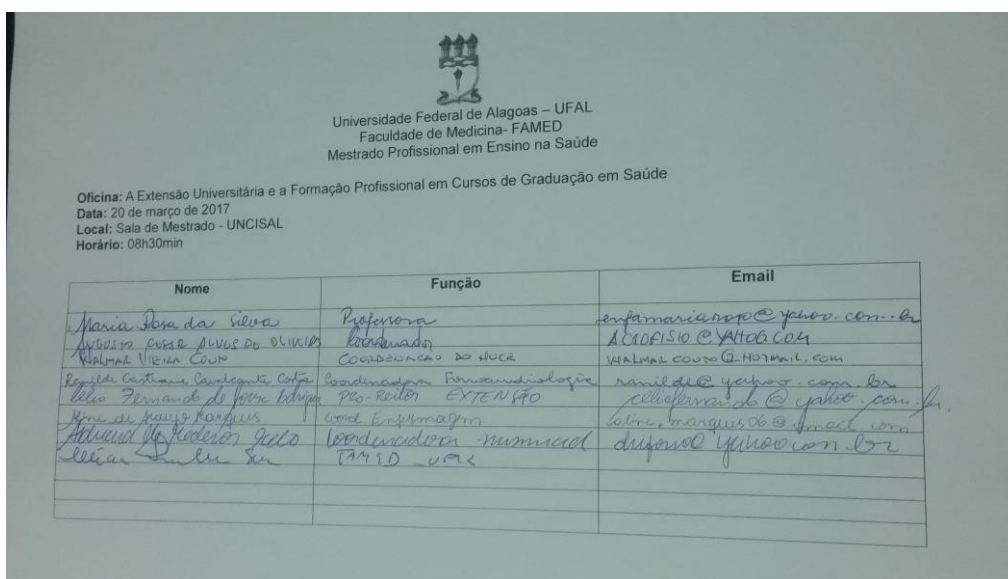 Universidade Federal de Alagoas – UFAL
Faculdade de Medicina- FAMED
Mestrado Profissional em Ensino na Saúde
Oficina: A Extensão Universitária e a Formação Profissional em Cursos de Graduação em Saúde
Data: 20 de março de 2017
Local: Sala de Mestrado - UNCISAL
Horário: 08h30min
Nome Função Email
Maria Rosa da Silva Professora
AUGUSTO CESAR ALVES DE OLIVEIRA Coordenador ACAOFISIO@YAHOO.COM
WALMAR VIEIRA COUTO COORDENAÇÃO DO NUCE WALMAR.COUTO@HOTMAIL.COM
Cavalcante Coordenadora Fonoaudiologia ranilde@yahoo.com.br
Celio Fernando de Pró-Reitor EXTENSÃO celiofernando@yahoo.com.br
de Araujo Marques Coord Enfermagem
Medeiros Coordenadora
FAMED - UFAL